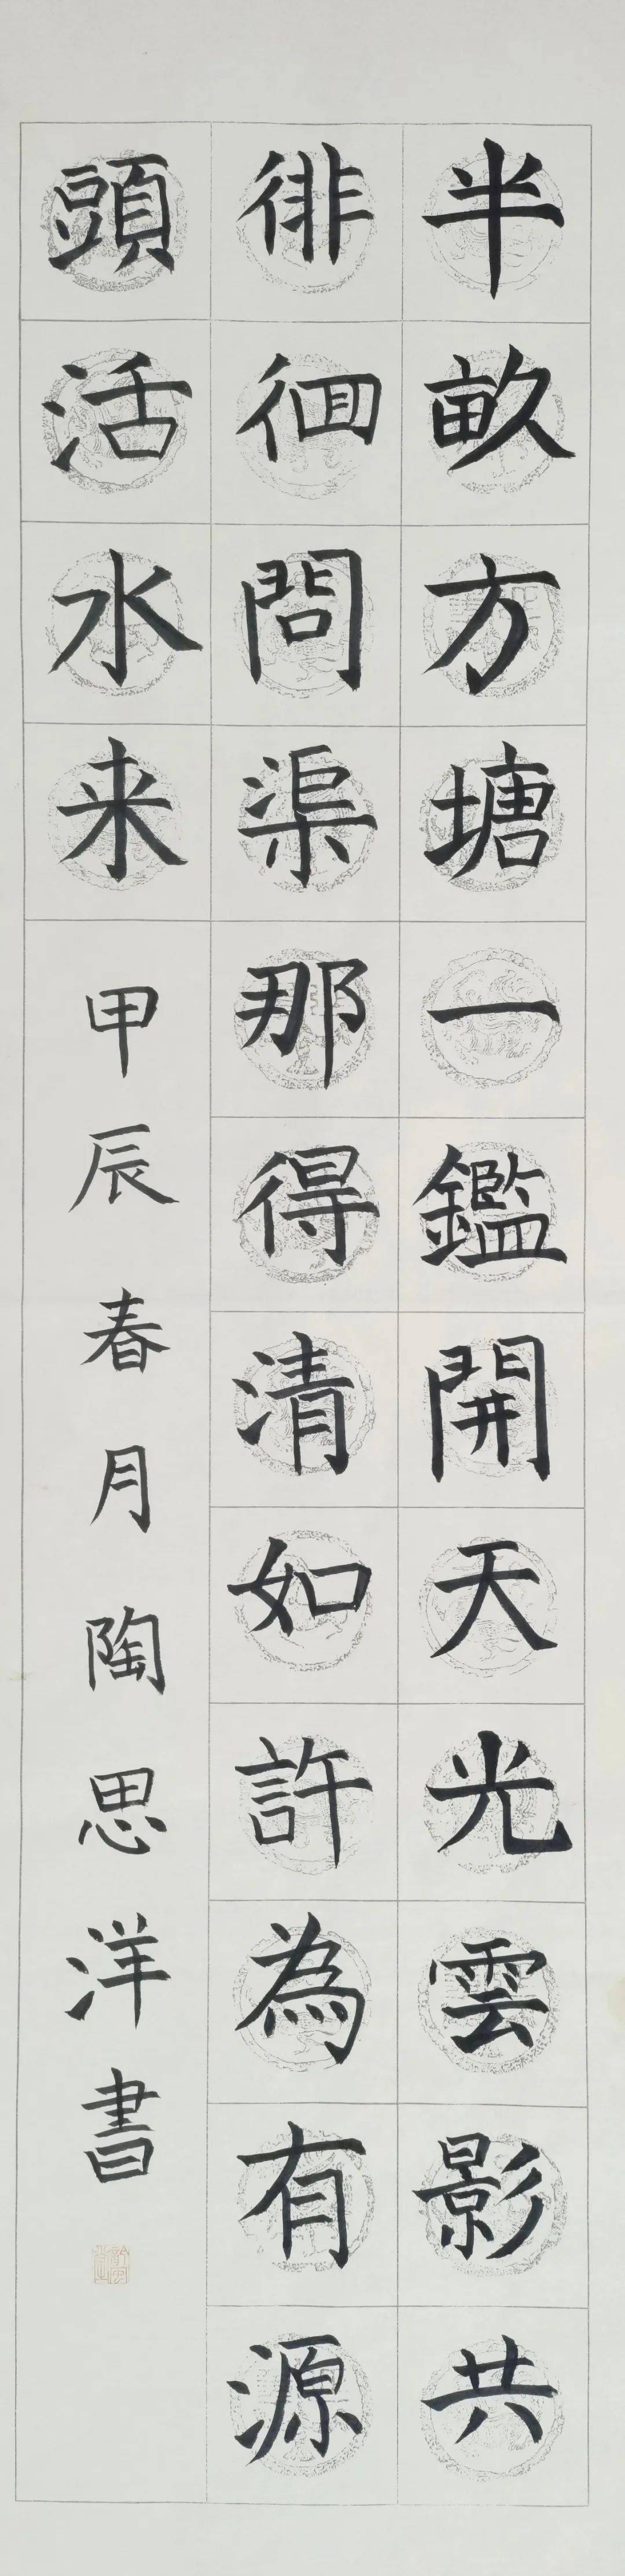 半畝方塘一鑑開天光雲影共
徘徊問渠那得清如許為有源
頭活水来
甲辰春月陶思洋書